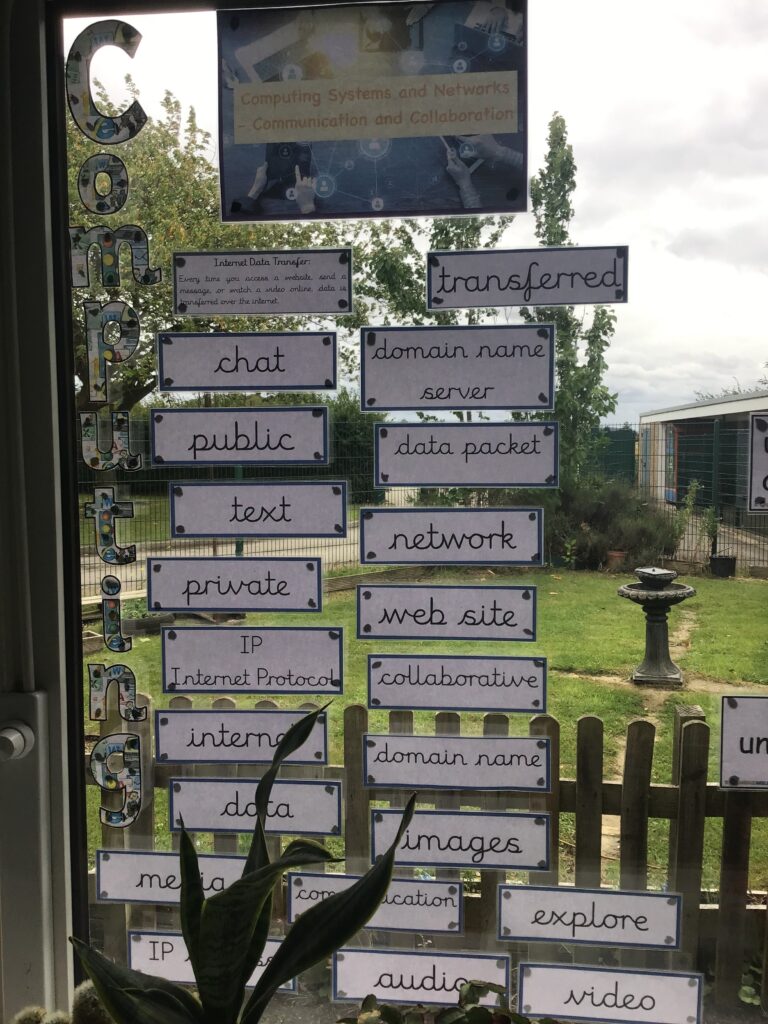 Computing
Computing Systems and Networks
- Communication and Collaboration
Internet Data Transfer:
Every time you access a website, send a
message, or watch a video online, data is
transferred over the internet.
transferred
chat
domain name
server
public
data packet
text
network
private
web site
IP
Internet Protocol
collaborative
interne
domain name
data
images
media
com ication
explore
IP
audio
video
un